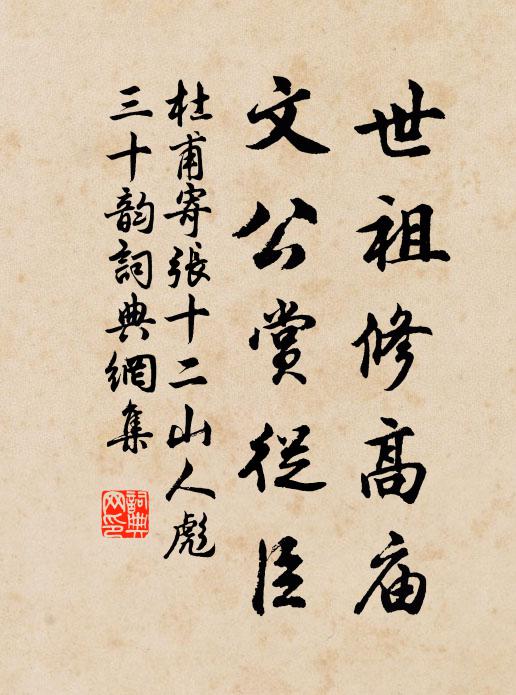 世祖修高庙
文公赏從臣
杜甫寄張十二山人彪
三十韵詞典網集
詞典
网印